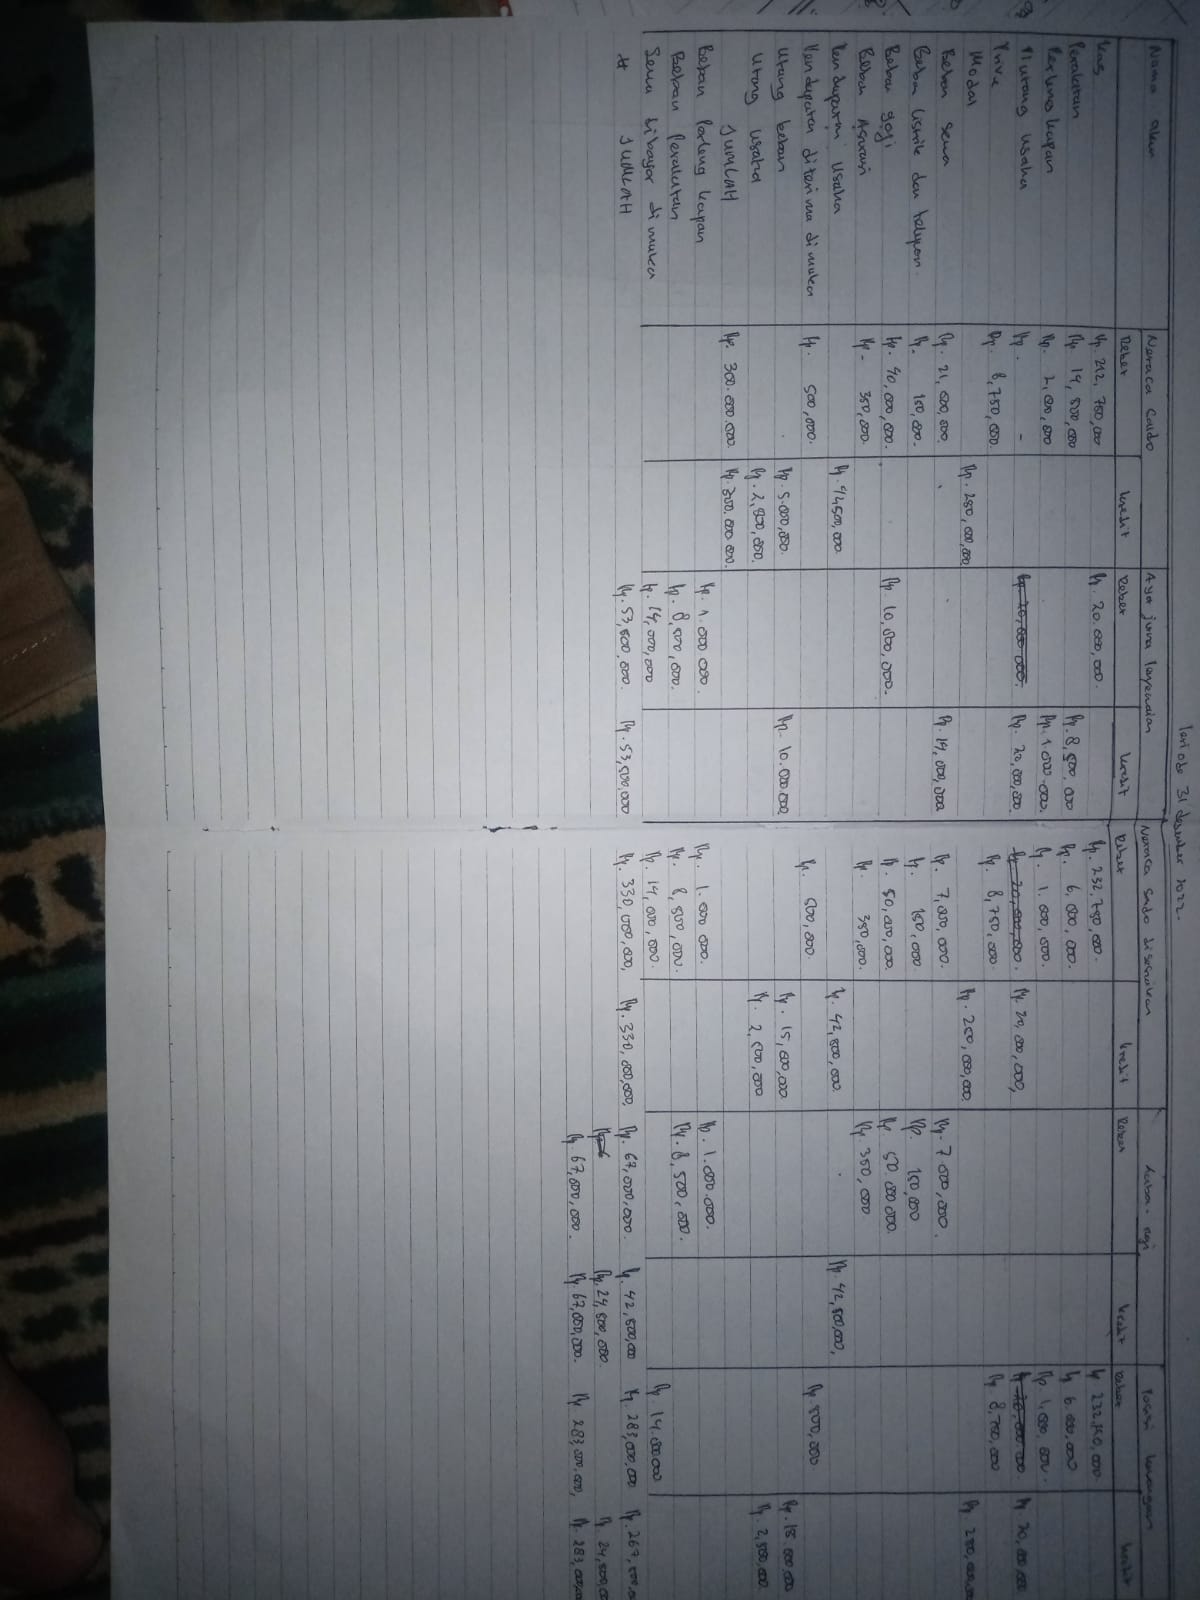 Periode 31 desember 2022.
Nama akun Neraca Saldo Ayat jurnal Penyesuaian Neraca Saldo disesuaikan Laba-rugi Posisi keuangan
Debet kredit Debet kredit Debet kredit Debet kredit Debet kredit
Kas Rp. 212,750,000 Rp. 20.000,000. Rp. 232,750,000.
Peralatan Rp. 14,500,000 Rp. 8,500.000 Rp. 6,000,000. Rp 6.000.000
Perlengkapan Rp. 2,000,000 Rp. 1.000.000. Rp. 1.000,000. Rp. 1.000.000.
Piutang usaha Rp. - Rp. 20,000,000. Rp. 20,000,000, Rp 20,000,000
Prive Rp. 8,750,000. Rp. 8,750,000.
Modal Rp. 250,000,000 Rp. 250,000,000. Rp 250,000,000
Beban sewa Rp. 21,000,000. Rp. 14,000,000 Rp. 7,000,000. Rp. 7.000,000.
Beban listrik dan telepon. Rp. 150,000. Rp. 150,000. Rp. 150,000
Beban gaji Rp. 40,000,000. Rp 10,000,000. Rp. 50,000,000. Rp 50.000.000.
Beban Asuransi Rp. 350,000. Rp. 350,000. Rp. 350,000
Pendapatan usaha Rp. 42,500,000. Rp. 42,500,000,
Pendapatan diterima dimuka Rp. 500,000. Rp. 500,000. Rp. 500,000
Utang beban Rp. 5.000,000. Rp. 10.000.000 Rp. 15,000,000 Rp. 15.000.000
Utang usaha Rp. 2,500,000. Rp. 2,500,000 Rp. 2,500,000.
JUMLAH Rp. 300.000.000. Rp. 300.000.000.
Beban Perlengkapan Rp. 1.000.000. Rp. 1.000.000. Rp. 1.000.000.
Beban Peralatan Rp. 8,500,000. Rp. 8,500,000. Rp. 8,500,000.
Sewa dibayar dimuka Rp. 14,000,000 Rp. 14,000,000. Rp 14.000.000
JUMLAH Rp. 53,500,000. Rp. 53,500,000 Rp. 330,000,000, Rp. 330,000,000, Rp. 67,000,000. Rp. 42,500,000 Rp. 283,000,000
Rp. 24,500,000 Rp 24,500,00
Rp 67,000,000. Rp. 67,000,000. Rp 283,000.000,